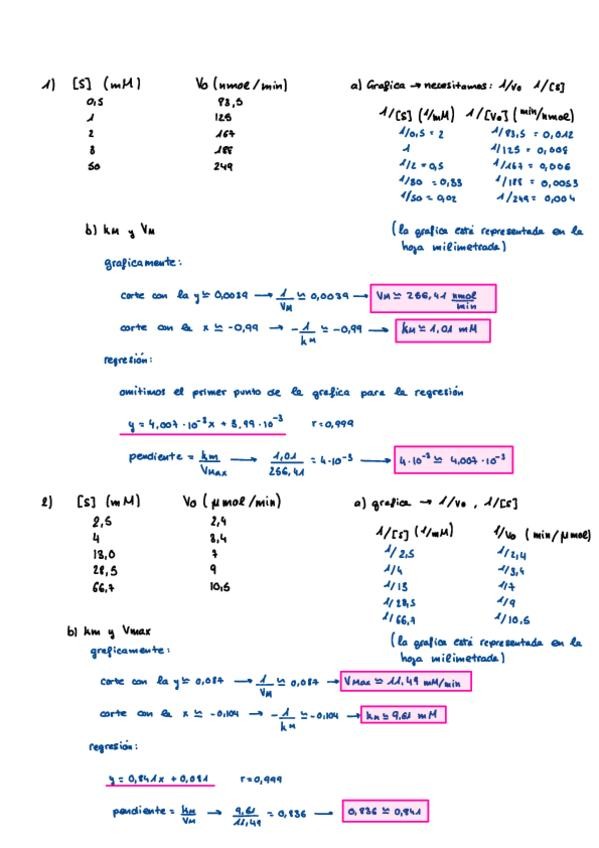 1) [S] (mM) Vo (nmol/min) a) Grafica → necesitamos: 1/Vo 1/[S]
0,5 83,5
1 125
2 167
3 188
50 249
1/[S] (1/mM) 1/[Vo] (min/nmol)
1/0,5 = 2 1/83,5 = 0,012
1 1/125 = 0,008
1/2 = 0,5 1/167 = 0,006
1/30 = 0,33 1/188 = 0,0053
1/50 = 0,02 1/249 = 0,004
(la grafica está representada en la
hoja milimetrada)
b) kM y VM
graficamente:
corte con la y ≃ 0,0039 → 1/VM ≃ 0,0039 → VM ≃ 256,41 nmol/min
corte con la x ≃ -0,99 → -1/kM ≃ -0,99 → kM ≃ 1,01 mM
regresión:
omitimos el primer punto de la grafica para la regresión
y = 4,007·10⁻³x + 3,99·10⁻³ r=0,999
pendiente = km/VMax → 1,01/256,41 = 4·10⁻³ → 4·10⁻³ ≃ 4,007·10⁻³
2) [S] (mM) Vo (μmol/min) a) grafica → 1/Vo , 1/[S]
2,5 2,4
4 3,4
13,0 7
28,5 9
66,7 10,5
1/[S] (1/mM) 1/Vo (min/μmol)
1/2,5 1/2,4
1/4 1/3,4
1/13 1/7
1/28,5 1/9
1/66,7 1/10,5
(la grafica está representada en la
hoja milimetrada)
b) km y Vmax
graficamente:
corte con la y ≃ 0,087 → 1/VM ≃ 0,087 → VMax ≃ 11,49 mM/min
corte con la x ≃ -0,104 → -1/kM ≃ -0,104 → kM ≃ 9,61 mM
regresión:
y = 0,841x + 0,081 r=0,999
pendiente = kM/VM → 9,61/11,49 = 0,836 → 0,836 ≃ 0,841